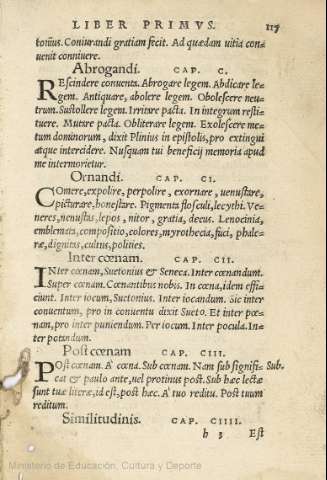 LIBER PRIMVS. 117
tonius. Coniurandi gratiam fecit. Ad quædam uitia con-
uenit conniuere.
Abrogandi. CAP. C.
REscindere conuenta. Abrogare legem. Abdicare le-
gem. Antiquare, abolere legem. Obolescere neu-
trum. Sustollere legem. Irritare pacta. In integrum resti-
tuere. Mutare pacta. Obliterare legem. Exolescere me-
tum dominorum, dixit Plinius in epistolis, pro extingui
atque intercidere. Nusquam tui beneficij memoria apud
me intermorietur.
Ornandi. CAP. CI.
COmere, expolire, perpolire, exornare, uenustare,
picturare, honestare. Pigmenta flosculi, lecythi. Ve-
neres, uenustas, lepos, nitor, gratia, decus. Lenocinia,
emblemata, compositio, colores, myrothecia, fuci, phale-
ræ, dignitas, cultus, polities.
Inter cœnam. CAP. CII.
INter cœnam, Suetonius & Seneca. Inter cœnandum.
Super cœnam. Cœnantibus nobis. In cœna, idem effi-
ciunt. Inter iocum, Suetonius. Inter iocandum. Sic inter
conuentum, pro in conuentu dixit Sueto. Et inter pœ-
nam, pro inter puniendum. Per iocum. Inter pocula. In-
ter potandum.
Post cœnam CAP. CIII.
POst cœnam. A' cœna. Sub cœnam. Nam sub signifi- Sub.
cat & paulo ante, uel protinus post. Sub hæc lectæ
sunt tuæ literæ, id est, post hæc. A' tuo reditu. Post tuum
reditum.
Similitudinis. CAP. CIIII.
h 3 Est
Ministerio de Educación, Cultura y Deporte